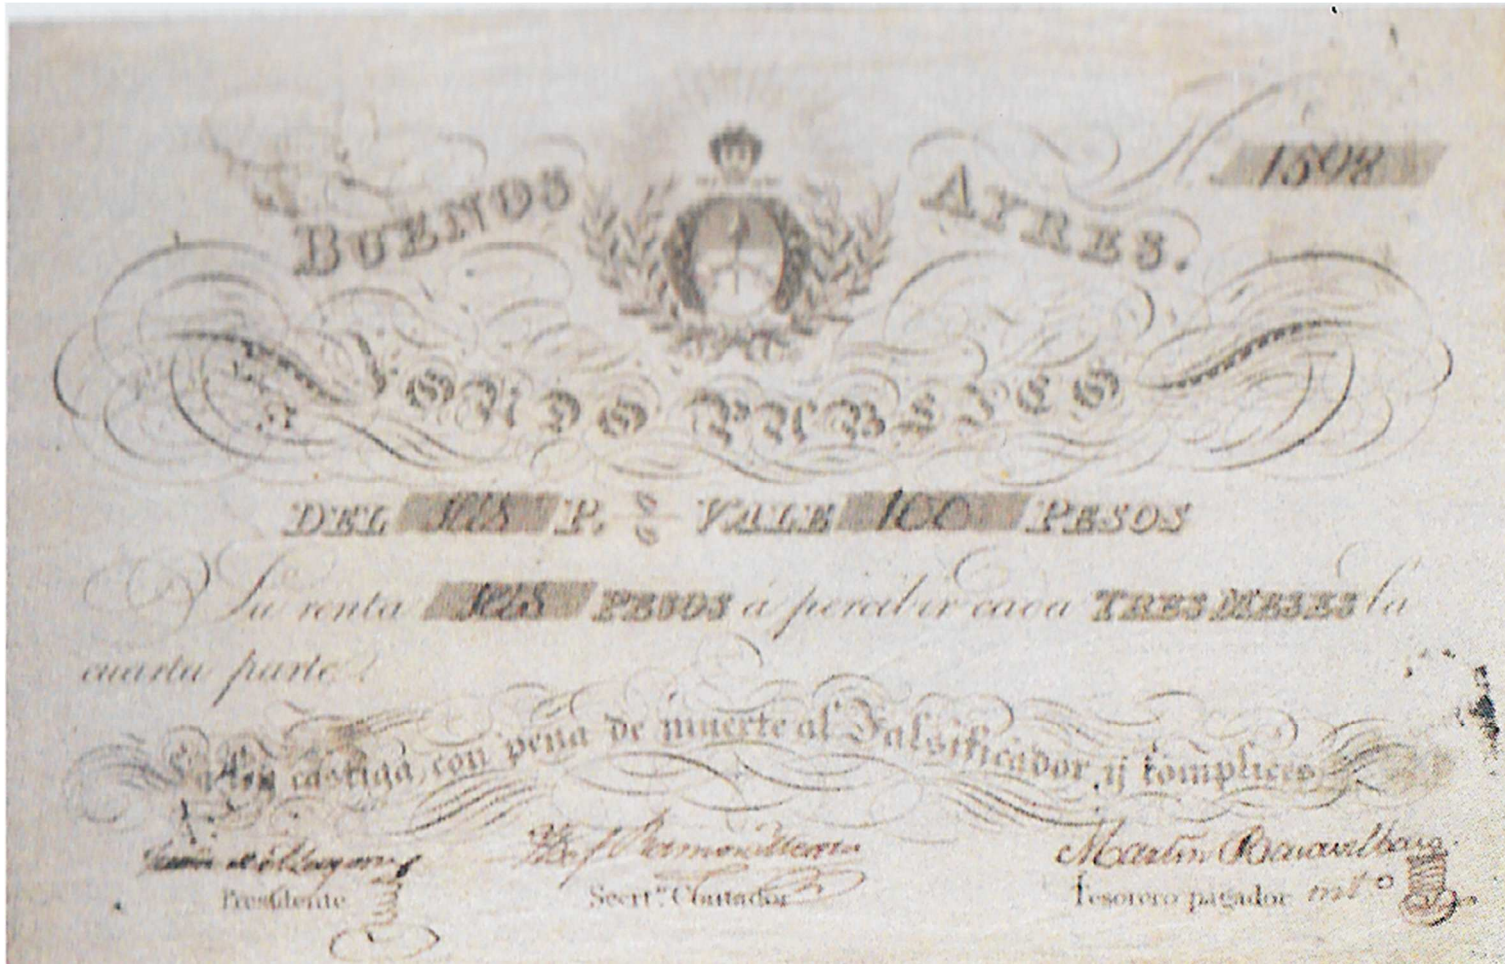 Nº 1598
BUENOS AYRES.
FONDO PUBLICO
DEL seis P. % VALE 100 PESOS
Su renta seis PESOS á percibir cada TRES MESES la
cuarta parte.
La ley castiga con pena de muerte al Falsificador y complices
Martin
Presidente Secrt.º Contador Tesorero pagador